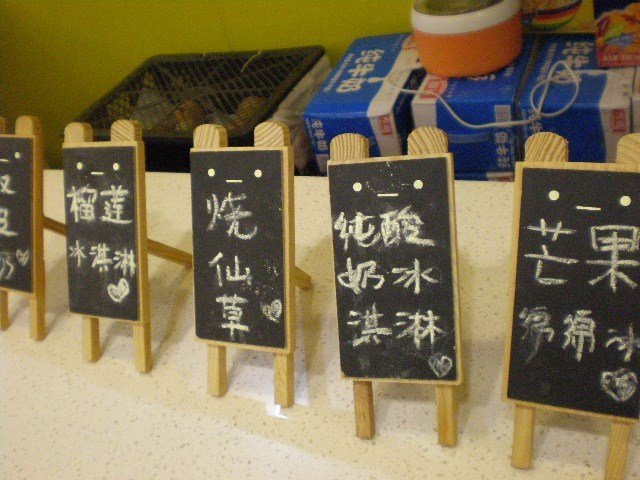 奶
榴莲
冰淇淋
烧
仙
草
纯酸
奶冰
淇淋
芒果
绵绵冰
纯牛奶